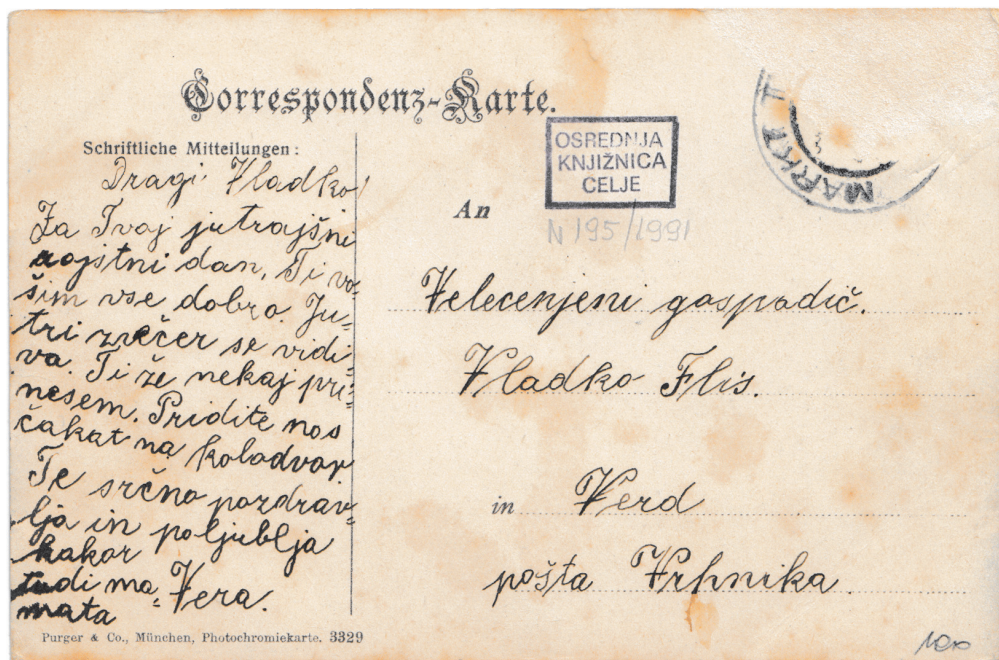 Correspondenz-Karte.
Schriftliche Mitteilungen:
Dragi Vladko!
Za Tvoj jutrajšni
rojstni dan, Ti vo-
šim vse dobro. Ju-
tri zvečer se vidi-
va. Ti že nekaj pri-
nesem. Pridite nas
čakat na kolodvor
Te srčno pozdrav-
lja in poljublja
kakor
tudi ma- Vera.
mata
Purger & Co., München, Photochromiekarte. 3329
OSREDNJA
KNJIŽNICA
CELJE
N 195/1991
An
Velecenjeni gospodič.
Vladko Flis.
in Verd
pošta Vrhnika.
MARKT